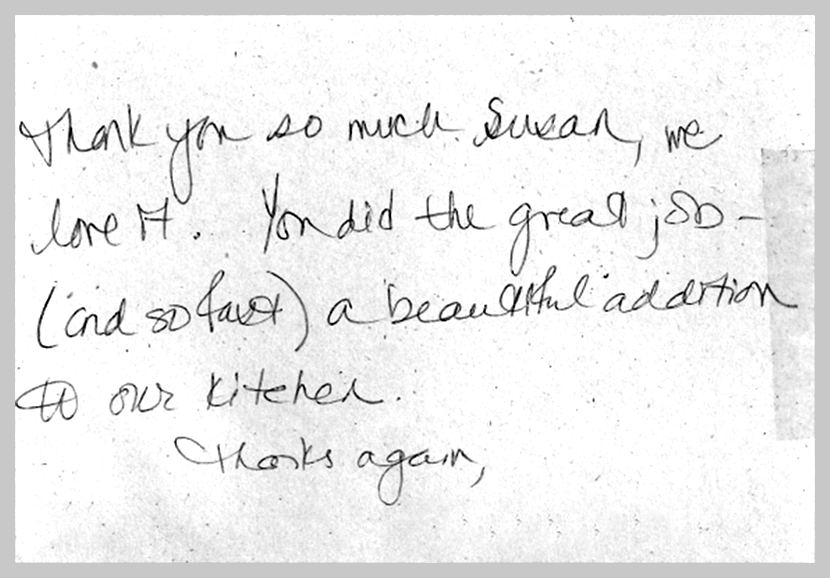 Thank you so much Susan, we
love it. You did the great job -
(and so fast) a beautiful addition
to our kitchen.
Thanks again,